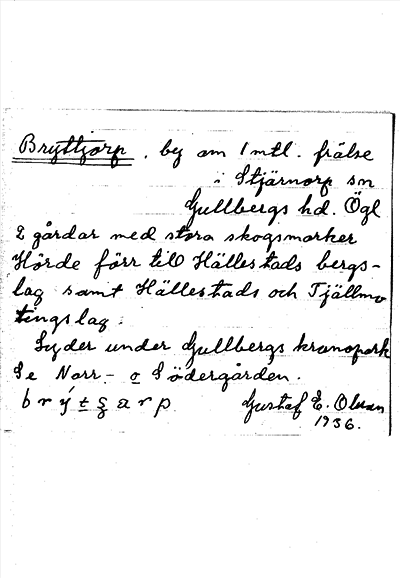 Bryttjorp, by om 1 mtl. frälse
i Stjärnorp sn
Gullbergs hd. Ögl
2 gårdar med stora skogsmarker
Hörde förr till Hällestads bergs-
lag samt Hällestads och Tjällmo
tingslag.
Lyder under Gullbergs kronopark
Se Norr- o Södergården.
Gustaf E. Olsson
1936.